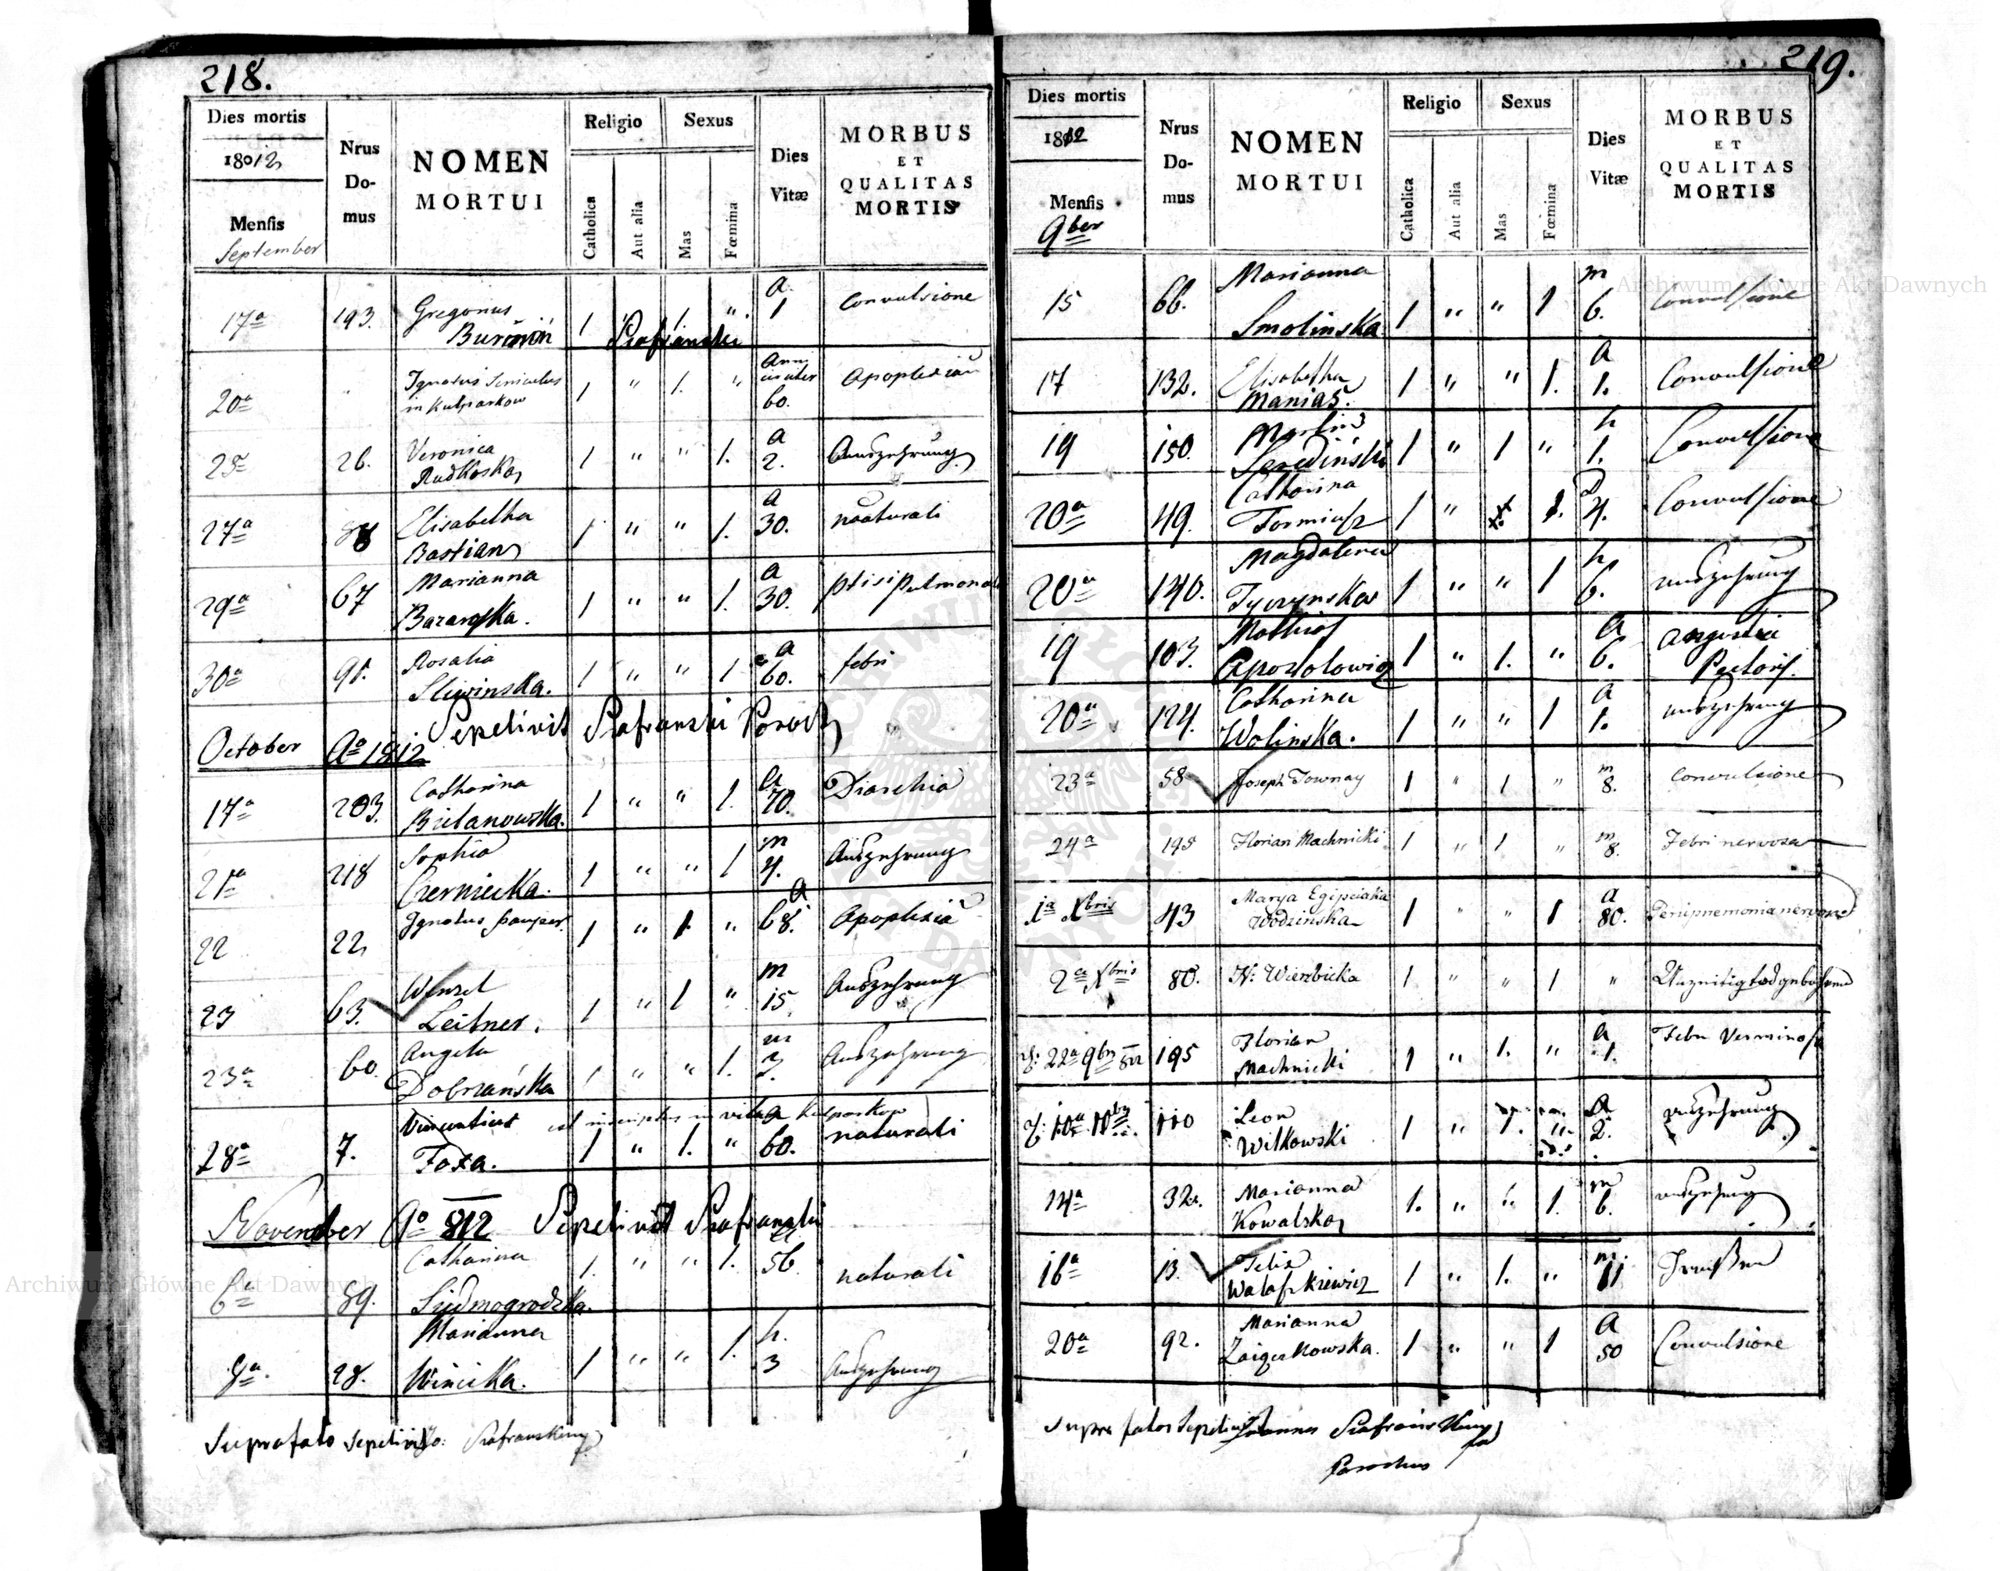 218.
Dies mortis
18012
Mensis
September
Nrus Do-mus
NOMEN MORTUI
Religio
Catholica
Aut alia
Sexus
Mas
Fœmina
Dies Vitæ
MORBUS ET QUALITAS MORTIS
17a 193. Gregorius 1 1 " a 1 Convulsione
Szafranski
20a Ignatius in Kulparkow 1 " 1. " 60. Apoplexia
25 26. Veronica Rudkoska 1 " " 1. a 2. Auszehrung
27a 88 Elisabetha Bastian 1 " " 1. a 30. naturali
29a 67 Marianna 1 " " 1. a 30. ptisi pulmonali
30a 91. Rosalia Sliwinska. 1 " " 1 a 60. febri
Sepelivit Szafranski Paroch
October Ao 1812
17a 203. Catharina Bielanowska. 1 " " 1. a 70. Diarchia
21a 218 Sophia Czerniecka. 1 " " 1 m 4. Auszehrung
22 22 Ignatius 1 " 1. " a 68. Apoplexia
23 63. Wenzel Leitner. 1 " 1 " m 15. Auszehrung
23a 60. Angela Dobrzańska 1 " " 1. m 3. Auszehrung
28a 7. Vincentius Foxa. 1 " 1. " a 60. naturali
November Ao 812 Sepelivit Szafranski
6a 89. Catharina Siedmogrodzka. 1. " " 1. 56 naturali
9a. 28. Marianna Winicka. 1 " " 1. h. 3 Auszehrung
Suprafato Sepelivit Jo: Szafranski mp
219.
Dies mortis
1812
Mensis
9ber
Nrus Do-mus
NOMEN MORTUI
Religio
Catholica
Aut alia
Sexus
Mas
Fœmina
Dies Vitæ
MORBUS ET QUALITAS MORTIS
15 66. Marianna Smolinska 1 " " 1 m 6. Convulsione
17 132. Elisabetha Manias. 1 " " 1. a 1. Convulsione
19 150. Martin 1 " 1 " h 1. Convulsione
20a 49. Catharina 1 " 1. D 4. Convulsione
20a 140. Magdalena Tyczynska 1 " " 1 h 6. auszehrung
19 103. Mathias Apostolowicz 1 " 1. " a 6. angustia Pectoris.
20a 124. Catharina Wolinska. 1 " " 1 a 1. auszehrung
23a 58 Joseph Townay 1 " 1 " m 8. Convulsione
24a 195 Florian Machnicki 1 " 1 " m 8. Febri nervosa
1a Xbris 43 Marya Egipciaka Wodzinska 1 " " 1 a 80. Peripnemonia nervosa
2a Xbris 80. N: Wierzbicka 1 " " 1 " Unzeitig todgebohren
22a 9br 812 195 Florian Machnicki 1 " 1. " a 1. Febri Verminosa
10a 10br 110 Leon Witkowski 1 " 1. " a 2. auszehrung
14a 32. Marianna Kowalska 1. " " 1. m 6. auszehrung
16a 13. Felix 1 " 1. " m. 11
20a 92. Marianna 1 " " 1 a 50 Convulsione
Suprafatos Sepelivit Joannes Szafrański mp
Parochus
Archiwum Główne Akt Dawnych
Archiwum Główne Akt Dawnych